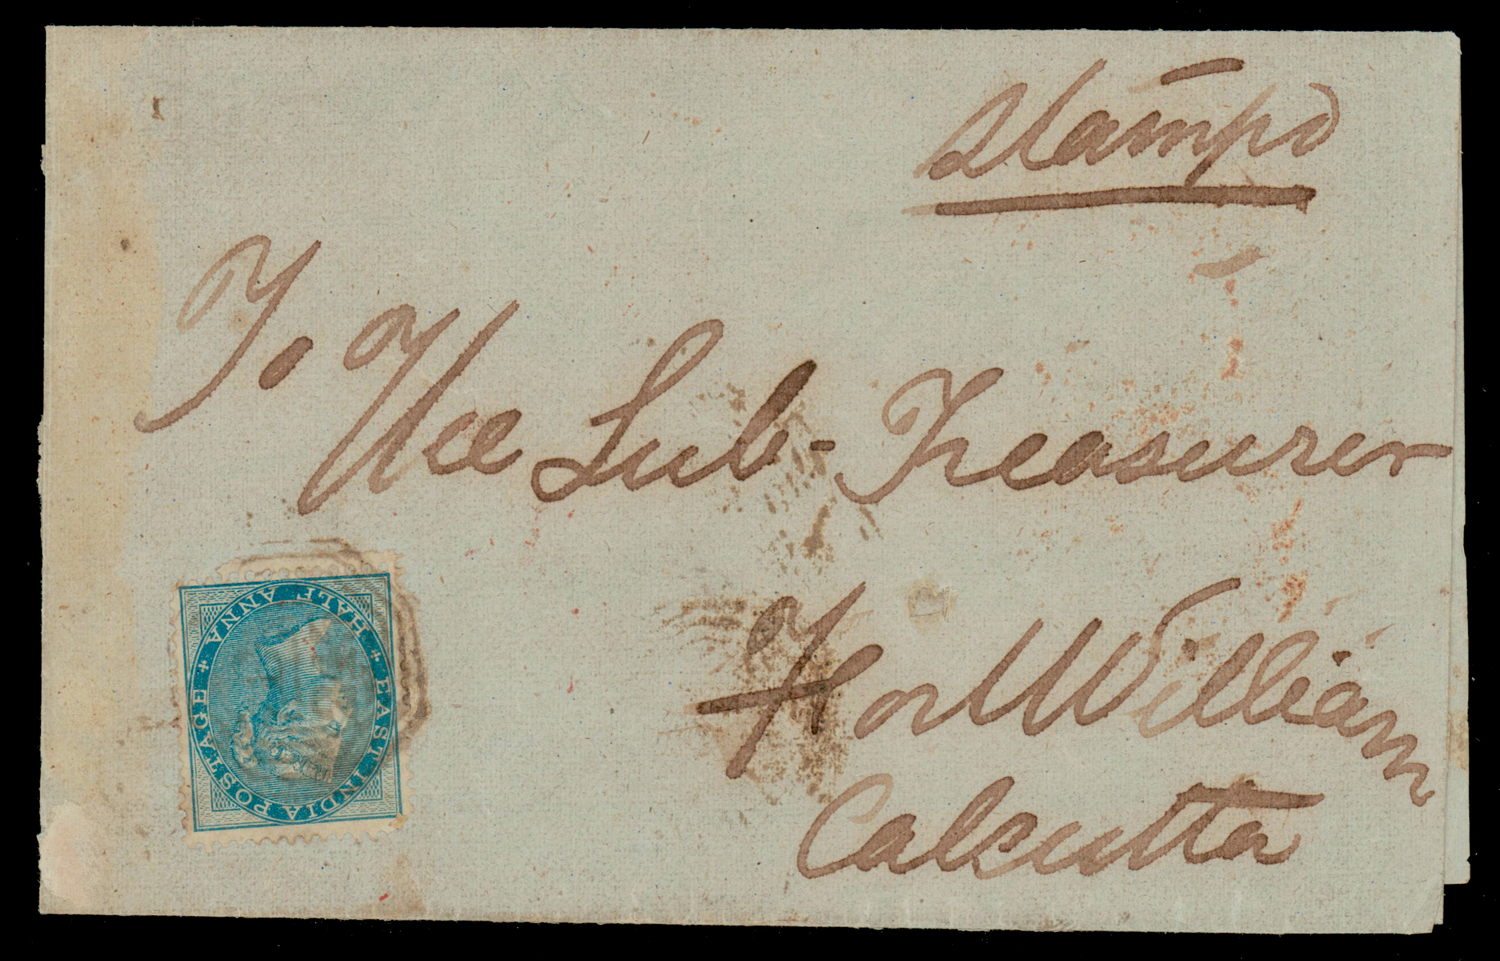 Stampd
To The Sub-Treasurer
Fort William
Calcutta
EAST INDIA POSTAGE
HALF ANNA